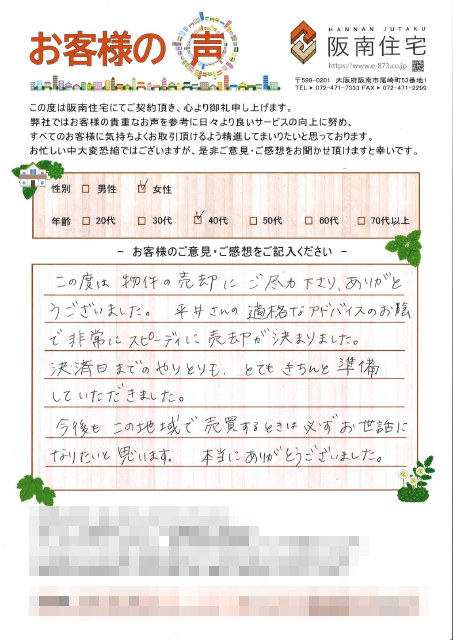 お客様の声
HANNAN JUTAKU
阪南住宅
https://www.e-873.co.jp
〒599-0201 大阪府阪南市尾崎町53番地1
TEL▶072-471-7333 FAX▶072-471-2299
この度は阪南住宅にてご契約頂き、心より御礼申し上げます。
弊社ではお客様の貴重なお声を参考に日々より良いサービスの向上に努め、
すべてのお客様に気持ちよくお取引頂けるよう精進してまいりたいと思っております。
お忙しい中大変恐縮ではございますが、是非ご意見・ご感想をお聞かせ頂けますと幸いです。
性別 □ 男性 ☑ 女性
年齢 □ 20代 □ 30代 ☑ 40代 □ 50代 □ 60代 □ 70代以上
- お客様のご意見・ご感想をご記入ください -
この度は 物件の売却に ご尽力下さり、ありがと
うございました。 平井さんの 適格なアドバイスのお陰
で 非常に スピーディに 売却が 決まりました。
決済日までのやりとりも、とてもきちんと 準備
していただきました。
今後も この地域で 売買するときは 必ず お世話に
なりたいと 思います。 本当に ありがとうございました。